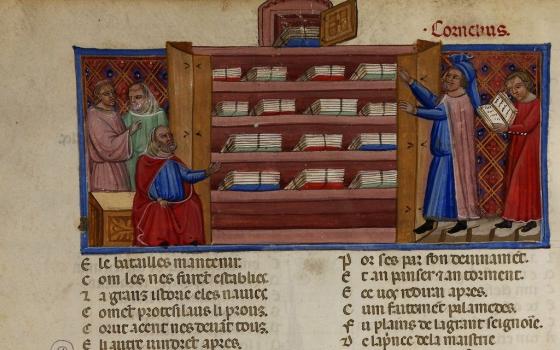 · Cornelius.
E le batailles mantenir.
C om les nes furēt establies.
⁊ a granz istorie eles nauies
C omēt protesilaus li prouz.
C orut acent nes deuāt touz.
E li autre uindrēt apres.
P or ses par son deuinamēt.
E t an panser ⁊ an torment.
E ce uos redirai apres.
C um faitemēt palamedes.
F u plains de la grant
de la maistrie